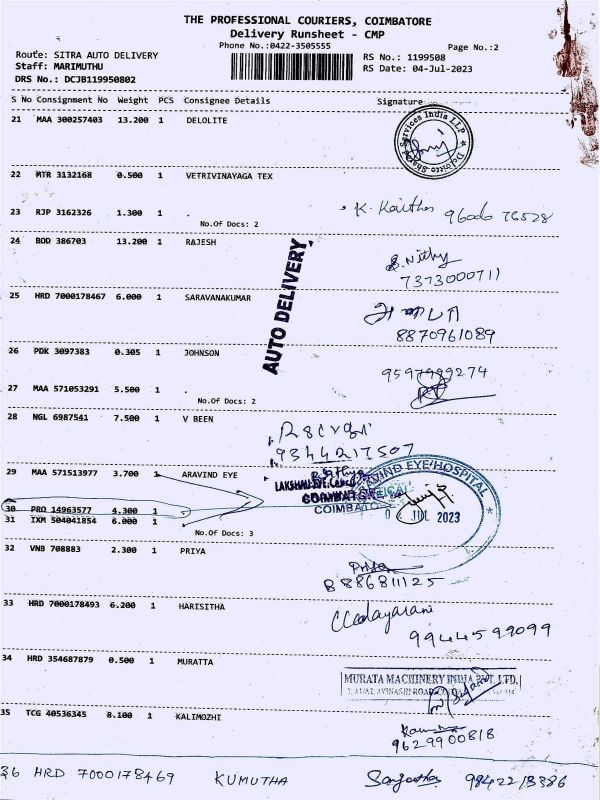 THE PROFESSIONAL COURIERS, COIMBATORE
Delivery Runsheet - CMP
Phone No.:0422-3505555
Page No.:2
Route: SITRA AUTO DELIVERY
RS No.: 1199508
Staff: MARIMUTHU
RS Date: 04-Jul-2023
DRS No.: DCJB119950802
S No Consignment No Weight PCS Consignee Details Signature
21 MAA 300257403 13.200 1 DELOLITE
Services India LLP
22 MTR 3132168 0.500 1 VETRIVINAYAGA TEX
23 RJP 3162326 1.300 1
K. Kaitha 96000 76528
No.Of Docs: 2
24 BOD 386703 13.200 1 RAJESH
S. Nithy
7373000711
AUTO DELIVERY
25 HRD 7000178467 6.000 1 SARAVANAKUMAR
8870961089
26 PDK 3097383 0.305 1 JOHNSON
9597999274
27 MAA 571053291 5.500 1
No.Of Docs: 2
28 NGL 6987541 7.500 1 V BEEN
9344217507
29 MAA 571513977 3.700 1 ARAVIND EYE
EYE HOSPITAL
30 PRO 14963577 4.300 1
COIMBATORE
31 IXM 504041854 6.000 1
JUL 2023
No.Of Docs: 3
32 VNB 708883 2.300 1 PRIYA
Priya
8886811125
33 HRD 7000178493 6.200 1 HARISITHA
9944599099
34 MRD 354687879 0.500 1 MURATTA
MURATA MACHINERY INDIA PVT. LTD.
35 TCG 40536345 8.100 1 KALIMOZHI
9629900818
36 HRD 7000178469 KUMUTHA 9842213386